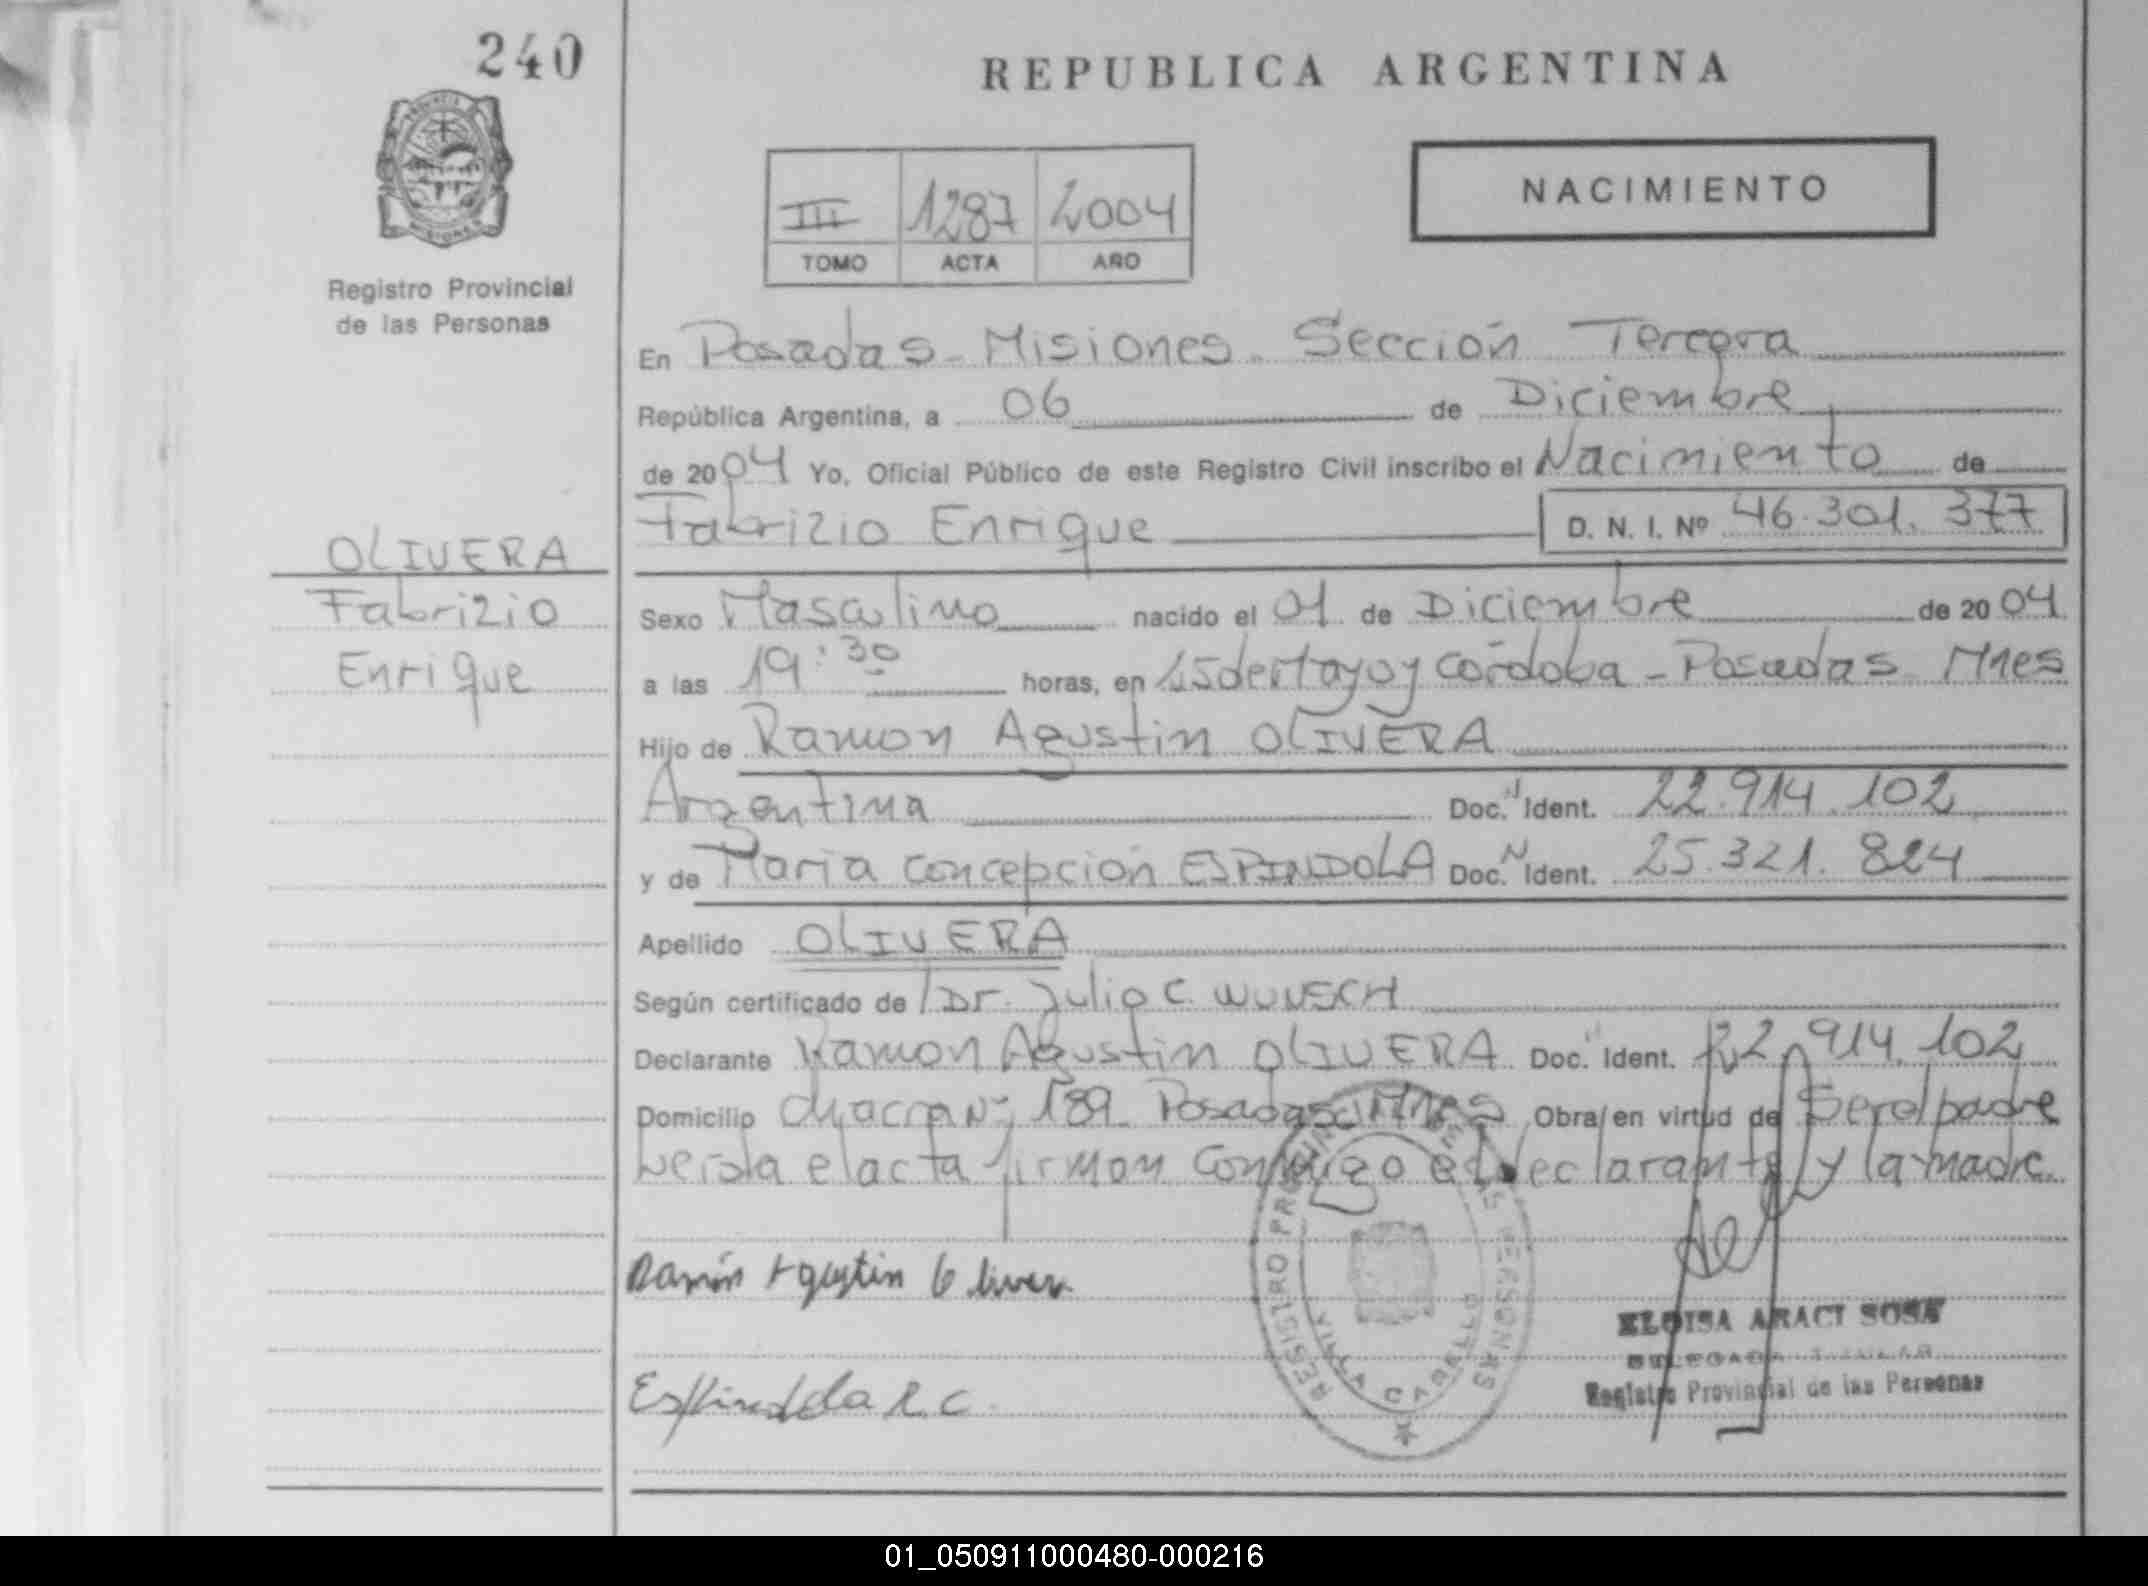 240
REPUBLICA ARGENTINA
III 1287 2004
TOMO ACTA AÑO
NACIMIENTO
Registro Provincial
de las Personas
En Posadas - Misiones - Sección Tercera
República Argentina, a 06 de Diciembre
de 2004 Yo, Oficial Público de este Registro Civil inscribo el Nacimiento de
Fabrizio Enrique D. N. I. Nº 46.301.377
OLIVERA
Fabrizio
Enrique
Sexo Masculino nacido el 01 de Diciembre de 2004
a las 19:30 horas, en 25 de Mayo y Córdoba - Posadas Mnes
Hijo de Ramon Agustin OLIVERA
Argentina Doc. Ident. 22.914.102
y de Maria Concepción ESPINDOLA Doc. Ident. 25.321.824
Apellido OLIVERA
Según certificado de Dr. Julio C. WUNSCH
Declarante Ramon Agustin OLIVERA Doc. Ident. 22.914.102
Domicilio chacra Nº 189 Posadas Mnes Obra en virtud de Ser el padre
Leída el acta firman conmigo el declarante y la madre.
Ramón Agustin Olivera
Espindola
REGISTRO PROVINCIAL DE LAS PERSONAS
VILLA CABELLO
ELOISA ARACI SOSA
DELEGADA TITULAR
Registro Provincial de las Personas
01_050911000480-000216